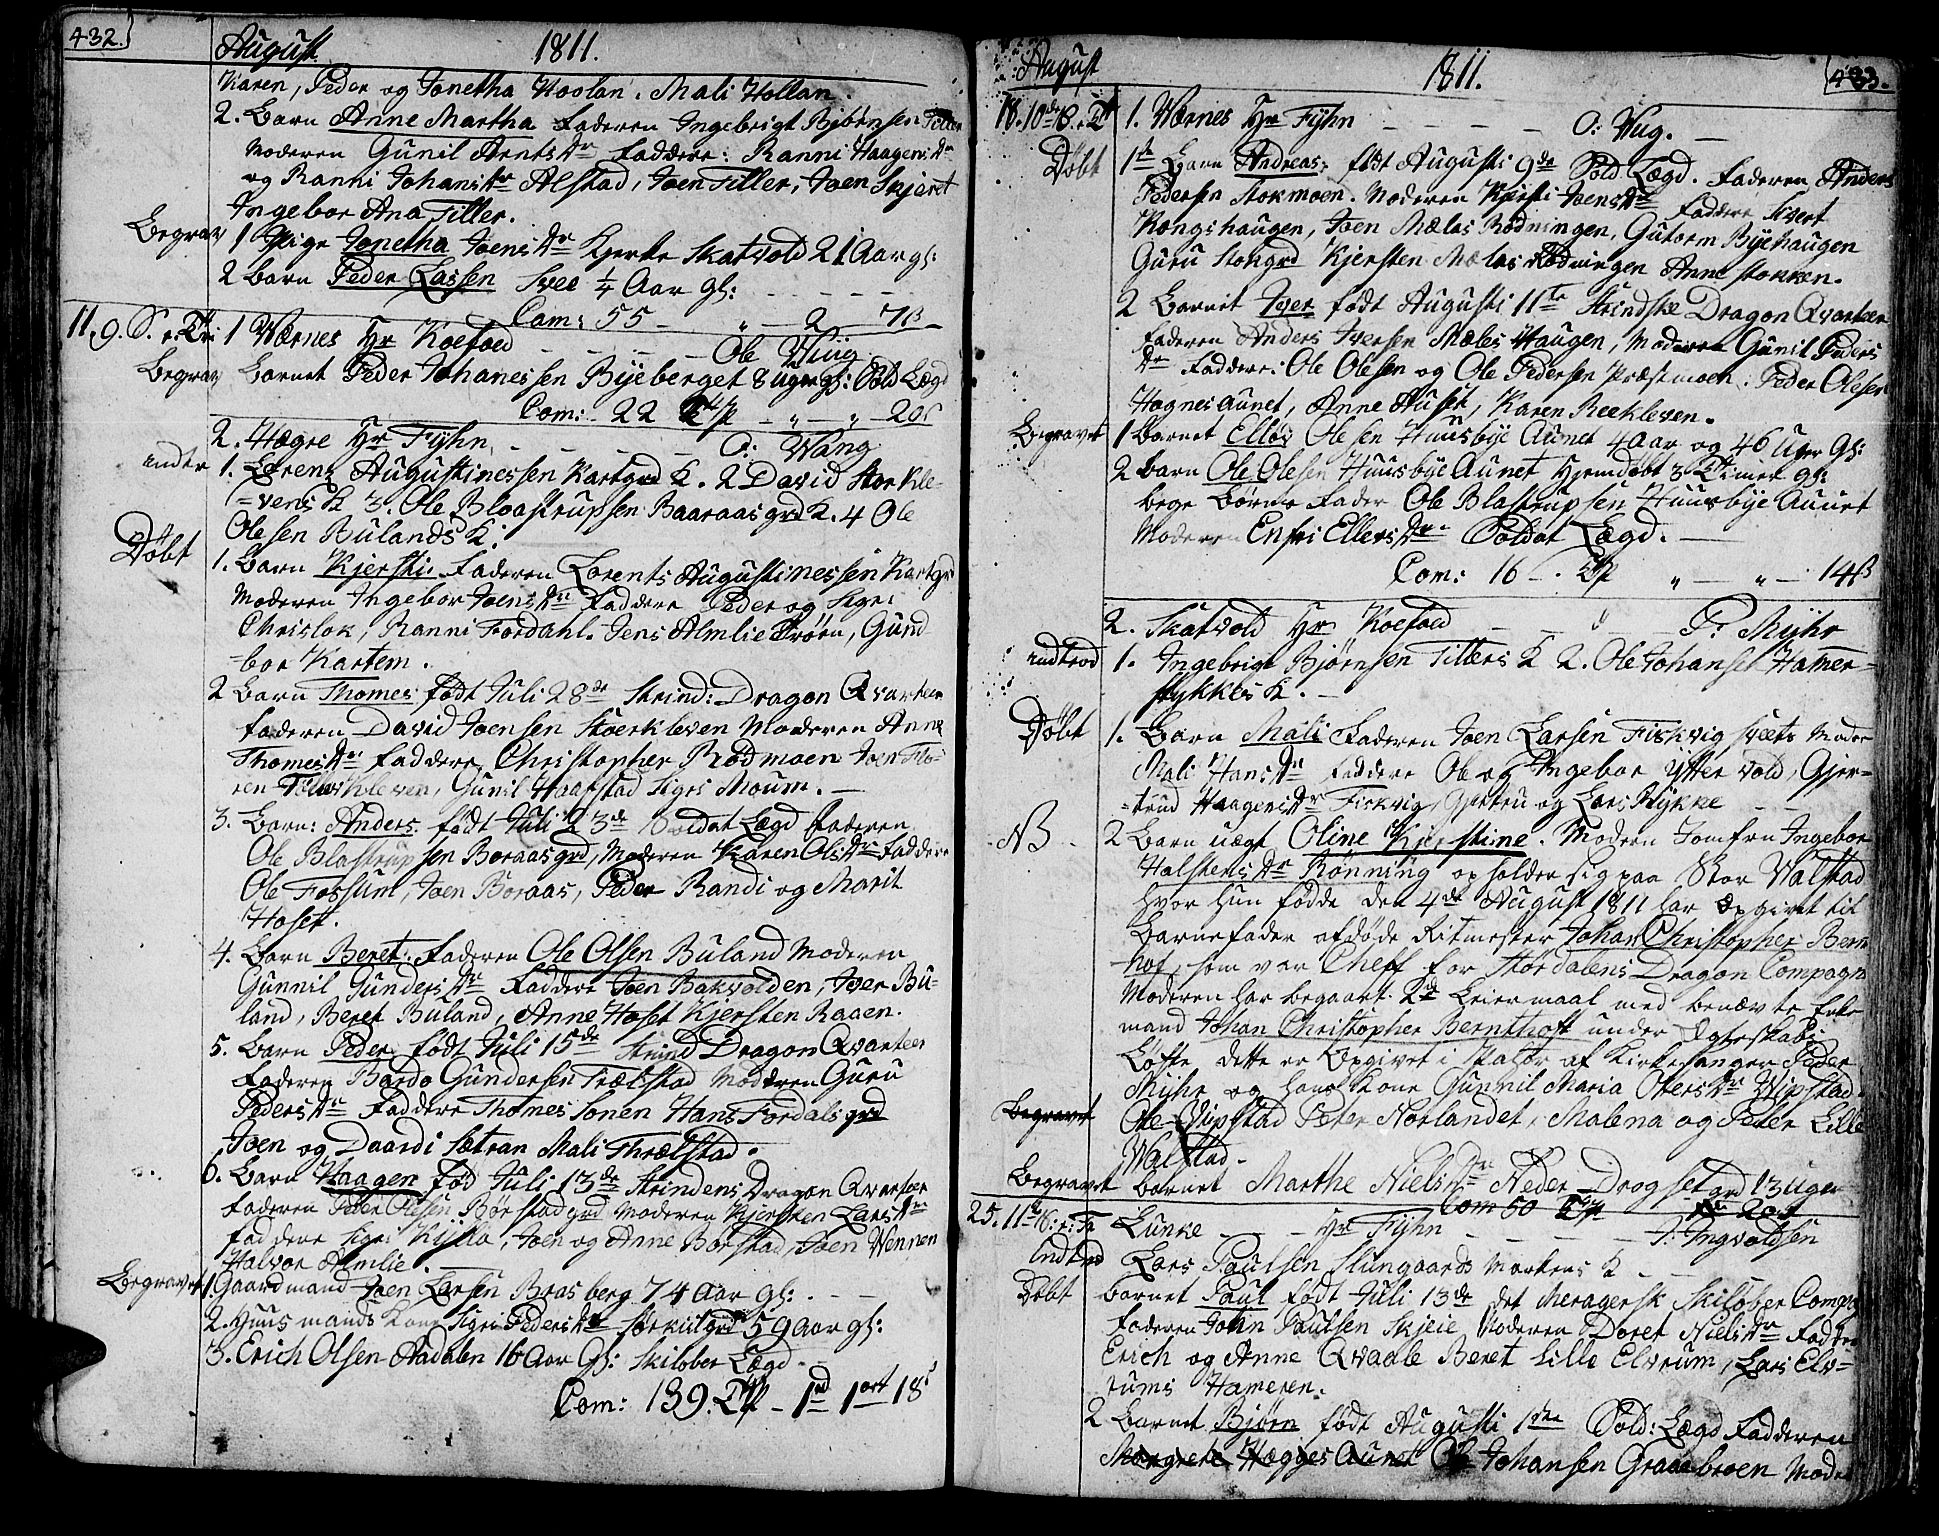 432.
August 1811.
Karen, Peder og Jonetha Hoolan. Mali Hollan.
2. Barn Anne Martha Faderen Ingebrigt Bjørnsen Tiller
Moderen Gunil Arntsdr Faddere: Ranni Haagensdr
og Ranni Johansdr Alstad, Joen Tiller, Joen Skjeret
Ingebor Ana Tiller.
Begrav 1 Pige Jonetha Joensdr Skatvold 21 Aar gl:
2 Barn Peder Lassen Svee 1/4 Aar gl:
Com: 55 - " - 2 - 7 ß
11. 9. S. e. Tri 1 Wærnes Hr Koefoed Ole Wiig
Begrav Barnet Peder Johanessen Bijeberget 8 Uger gl: Sold Lægd
Com: 22 - " - " - 20 s
2. Hegre Hr Fÿhn O: Wang
1. Lorens Augustinessen Kartgrd K. 2 David Storkle-
=vens K 3. Ole Bloastrupsen Baaraasgrd K. 4 Ole
Olesen Bulands K.
Døbt 1. Barn Kjersti Faderen Lorents Augustinessen Kartgrd
Moderen Ingebor Joensdr Faddere Peder og Sigri
Chrislok, Ranni Fordahl. Jens Almlie Trøen, Gund-
=bor Kartem.
2 Barn Thomes født Juli 28de Strind: Dragon Qvarteer
Faderen David Joensen Storkleven Moderen Anne
Thomesdr Faddere, Christopher Rødmoen Joen
Gunil Haarstad Sigri Moum.
3. Barn: Anders født Juli 23de Soldat Lægd Faderen
Ole Blastrupsen Boraasgrd, Moderen Karen Olsdr Faddere
Ole Fossum, Joen Boraas, Peder Randi og Marit
Hoset.
4. Barn Beret: Faderen Ole Olsen Buland Moderen
Gunnil Gundersdr Faddere Joen Bakvolden, Iver Bu-
land, Beret Buland, Anne Hoset Kjersten Raaen.
5. Barn Peder født Juli 15de Strind Dragon Qvarteer
Faderen Bardo Gundersen Trælstad Moderen Guru
Pedersdr Faddere Thomes Sonen Hans Fordalsgrd
Joen og Daardi Sætran Mali Thrælstad.
6. Barn Haagen fød Juli 13de Strindens Dragon Qvarteer
Faderen Peder Olesen Børstadgrd Moderen Kjersten Larsdr
Faddere Sigri Joen og Anne Borstad, Joen Wennen
Halvor Almlie.
Begravet 1. Gaardmand Joen Larsen Brasberg 74 Aar gl:
2. Huusmands Kone Sigri Pedersdr 59 aar gl:
3. Erich Olsen Aadalen 16 Aar Gl: Skilober Lægd
Com: 139. 1rd 1ort 18s
August 1811. 433.
18. 10de S. e. Tr 1. Wærnes Hr Fÿhn O: Wug.
Døbt 1te Barn Andreas: født Augusti 9de Sold Lægd. Faderen Anders
Pedersen Stokmoen. Moderen Kjersti Joensdr Faddere Sivert
Kongshaugen, Joen Mælas Rødningen, Gutorm Bÿehaugen
Guru Kjersten Mælas Rødningen Anne Stokken.
2 Barnet Iver født Augusti 11te Strindske Dragon Qvarteer
Faderen Anders Iversen Mæles Haugen, Moderen Gunil Peders
dr Faddere: Ole Olesen og Ole Pedersen Præstmoen. Peder Olesen
Hognesaunet, Anne Auset, Karen Reekleven.
Begravet 1 Barnet Ellev Olesen Huusbÿe Aunet 4 aar og 46 Uger Gl:
2 Barn Ole Olesen Huusbÿe Aunet Hjemdøbt 3 Timer gl:
bege Børns Fader Ole Blastrupsen Huusbÿe Aunet
Moderen Ensri Ellersdr Soldat Lægd.
Com: 16 - " - " - 14 ß
2. Skatvold Hr Koefoed P: Mÿhr
indtrod 1. Ingebrigt Bjørnsen Tillers K 2. Ole Johansen Hamer-
stykkes K.
Døbt 1. Barn Mali Faderen Joen Larsen Fiskvig Moder
Mali Hansdr Faddere Ole og Ingebor Ytter Vold, Gjer-
=trud Haagensdr Fiskvig, Gjertru og Lars Stykke
NB 2 Barn uægt Oline Kjerstine. Modern Jomfru Ingebor
Halstensdr Rønning opholder sig paa Stor Walstad
hvor hun fødde den 4de August 1811 har Opgivet til
Barnefader afdøde Ritmester Johan Christopher Bern
hof, som var Cheff for Størdalens Dragon Compagni
Moderen har begaaet 2de Leiermaal med benævte Enke
mand Johan Christopher Bernthoft under Ægteskabs
Løfte dette er Opgivet i af Kirkesanger Peder
Mÿhr og hans Kone Gunnil Maria Olersdr Wipstad.
Begravet Ole Wipstad Peter Norlandet, Malena og Peter Lille
Walstad.
Begravet Barnet Marthe Nielsdr Neder Drogsetgrd 13 uger
Com 50
25. 11te S: e: Tr Lunke Hr Fÿhn P. Ingvoldsen
Indtrd Lars Paulsen Slungaards Markens K
Døbt Barnet Paul født Juli 13de det Meragersk Skilober Comp
Faderen John Paulsen Skjeie Moderen Doret Nielsdr Faddere
Erich og Anne Qvaale Beret Lille Elvrum, Lars Elv-
rums Hameren.
2 Barnet Bjørn født Augusti 1ste Sold: Lægd Fadderen
Mangrete Hægges Aunet Ole Johansen Graaebroen Moder